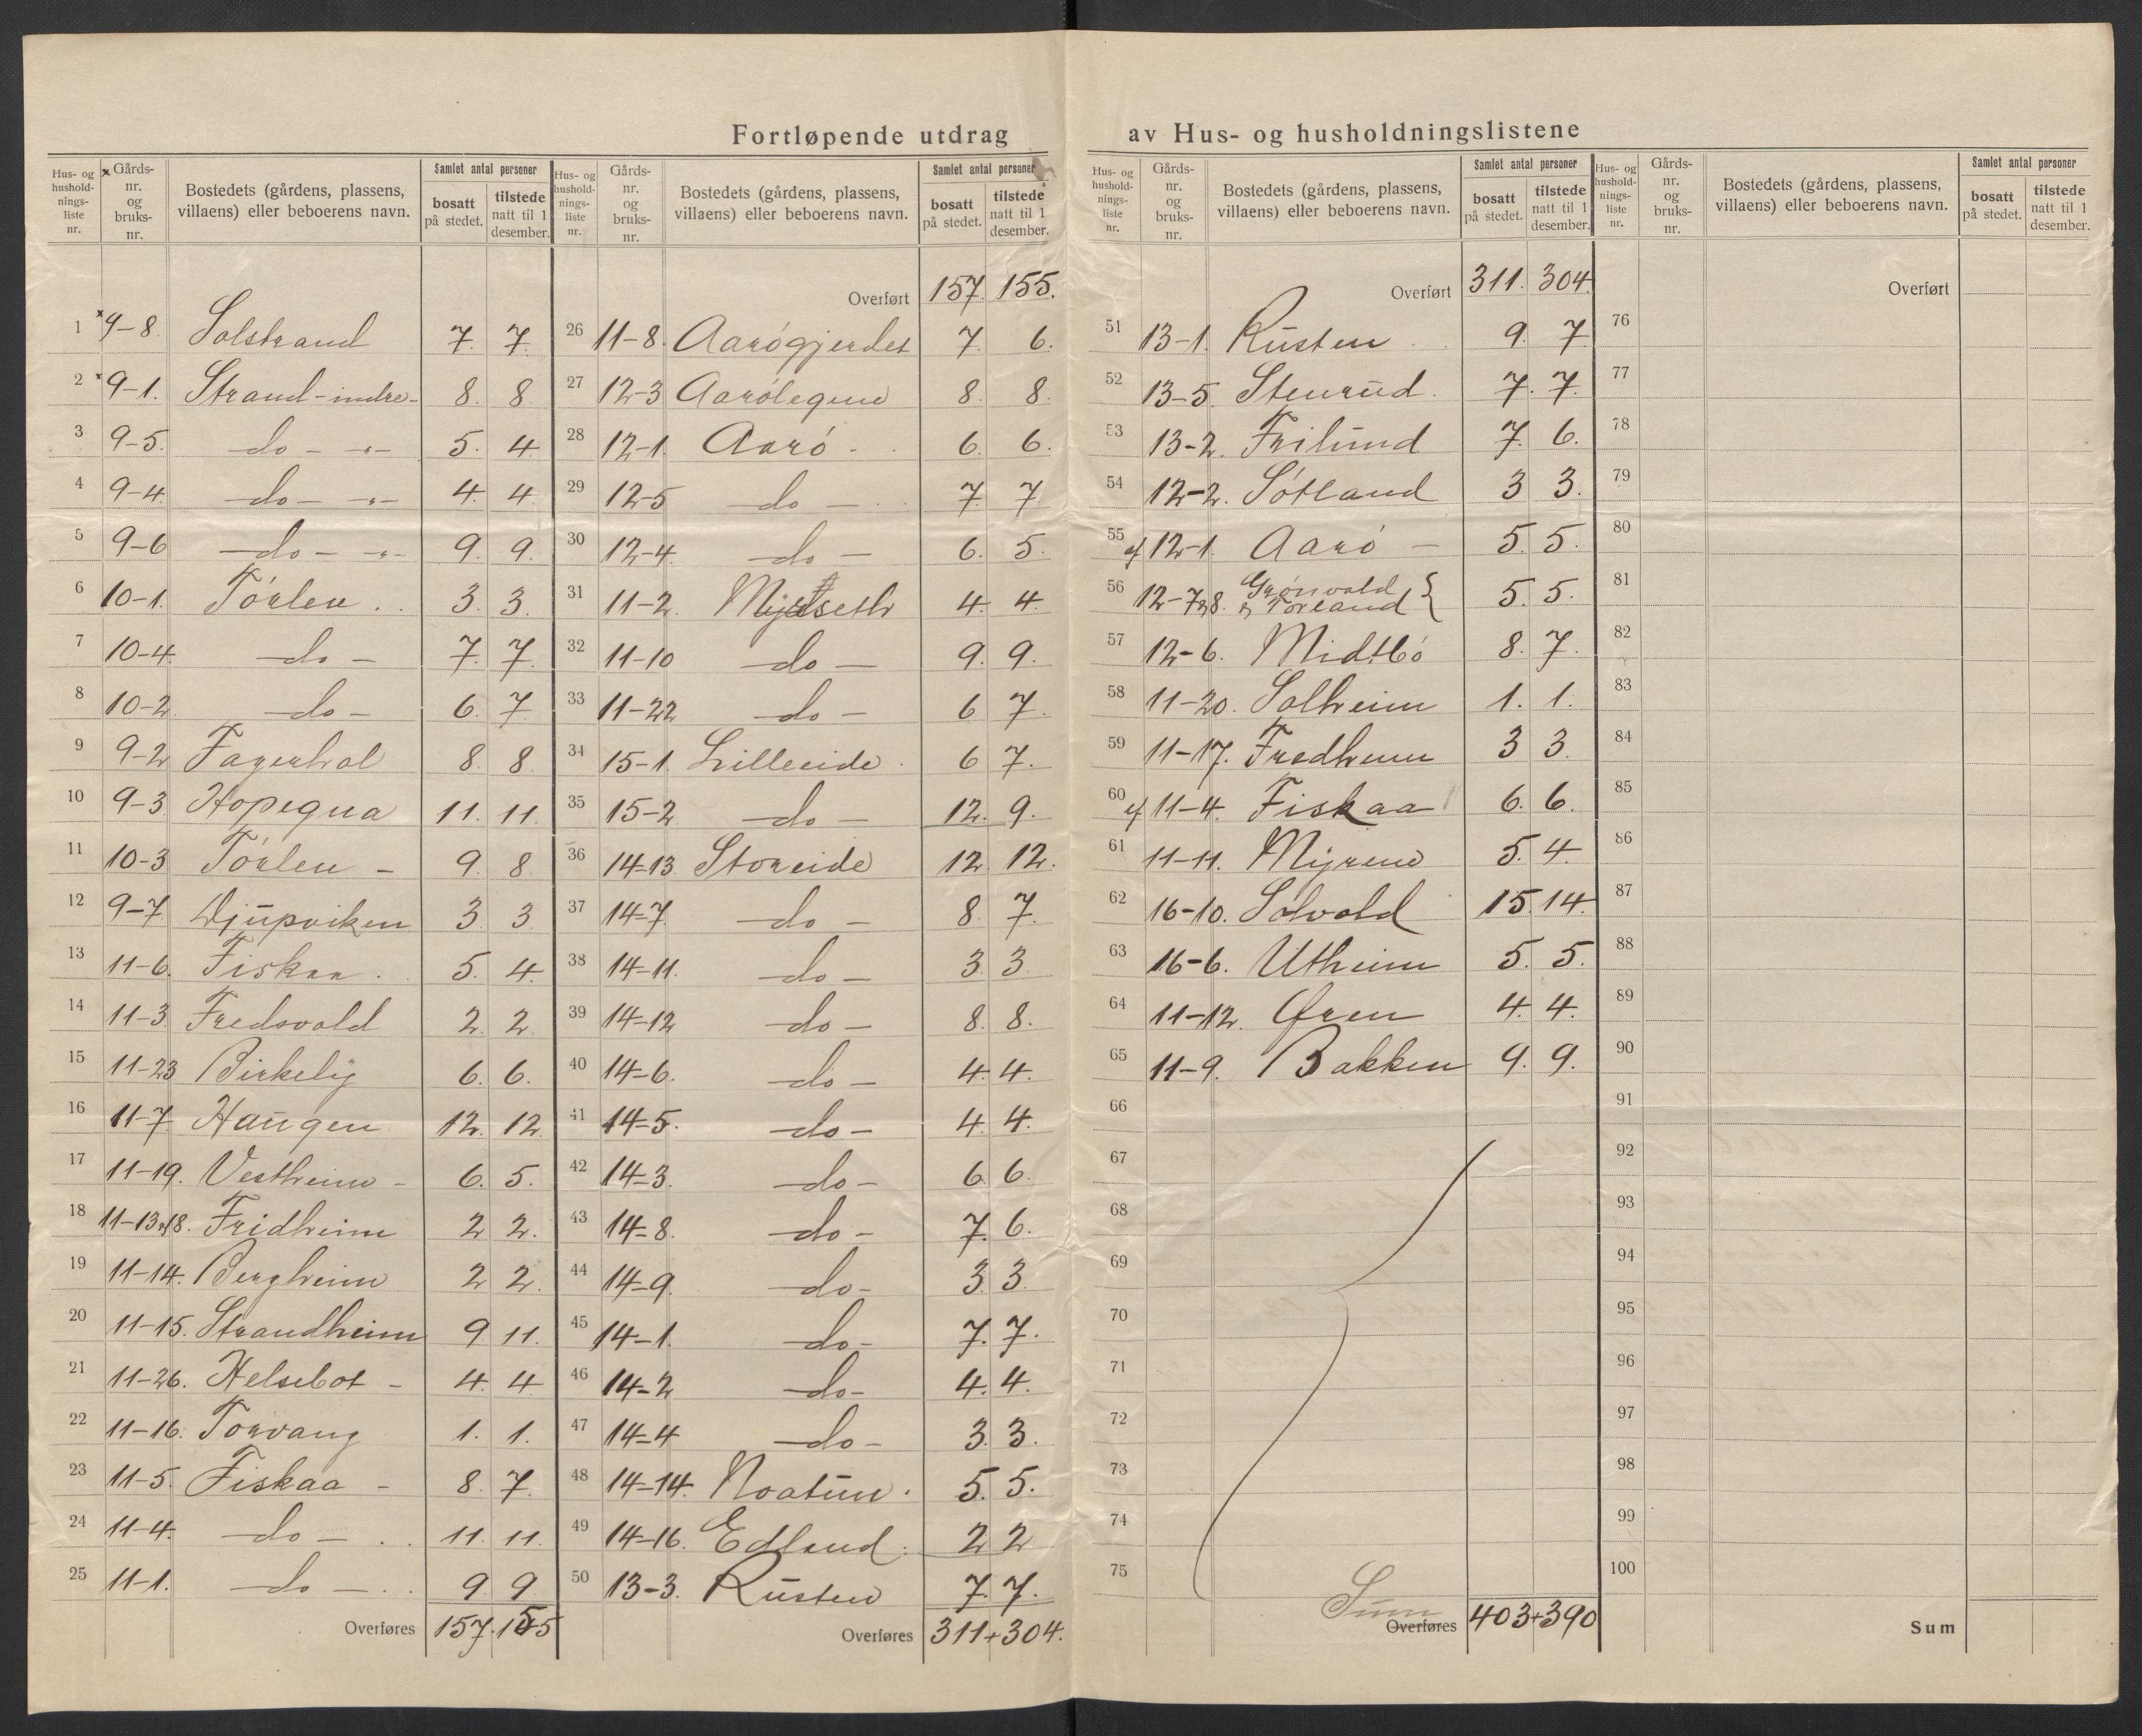 Fortløpende utdrag av Hus- og husholdningslistene
Hus- og hushold-nings-liste nr. × Gårds-nr. og bruks-nr. Bostedets (gårdens, plassens, villaens) eller beboerens navn. Samlet antal personer bosatt på stedet. tilstede natt til 1 desember.
1 ×9-8. Solstrand 7. 7.
2 ×9-1. Strand-indre- 8. 8
3 9-5. do - -"- 5. 4
4 9-4. do - -"- 4. 4
5 9-6 do - -"- 9. 9.
6 10-1. Törlen . . 3. 3.
7 10-4. do - 7. 7.
8 10-2 do - 6. 7
9 9-2 Fagerhol 8. 8
10 9-3 Hopegua 11. 11.
11 10-3 Törlen - 9. 8
12 9-7 Djupviken 3 3
13 11-6. Fiskaa . 5. 4.
14 11-3 Fredsvold 2. 2.
15 11-23 Birkelÿ 6. 6.
16 11-7 Haugen 12. 12
17 11-19. Vestheim - 6. 5.
18 11-13&18. Fridheim 2 2.
19 11-14. Bergheim 2 2.
20 11-15. Strandheim 9 11.
21 11-26. Helsebot - 4. 4
22 11-16. Torvang 1. 1.
23 11-5. Fiskaa - 8. 7.
24 11-4. do - . . 11. 11.
25 11-1. do - . . 9. 9
Overføres 157. 155
Hus- og hushold-nings-liste nr. Gårds-nr. og bruks-nr. Bostedets (gårdens, plassens, villaens) eller beboerens navn. Samlet antal personer bosatt på stedet. tilstede natt til 1 desember.
Overført 157. 155.
26 11-8. Aarögjerdet 7. 6.
27 12-3 Aarölegene 8. 8.
28 12-1. Aarö - . 6. 6.
29 12-5 do - . 7. 7
30 12-4. do - 6. 5.
31 11-2. Myrseth 4. 4.
32 11-10 do - 9. 9.
33 11-22 do - 6 7.
34 15-1. Lilleeide . 6 7.
35 15-2 do - 12. 9.
36 14-13 Storeide 12. 12.
37 14-7. do - 8. 7.
38 14-11. do - 3. 3.
39 14-12 do - 8. 8.
40 14-6. do - 4. 4.
41 14-5. do - 4. 4.
42 14-3. do - 6. 6.
43 14-8. do - 7. 6.
44 14-9. do - 3. 3.
45 14-1. do - 7. 7.
46 14-2 do - 4. 4.
47 14-4 do - 3. 3.
48 14-14. Noatun . 5. 5.
49 14-16. Edland . 2 2
50 13-3. Rusten 7. 7.
Overføres 311+304.
Hus- og hushold-nings-liste nr. Gårds-nr. og bruks-nr. Bostedets (gårdens, plassens, villaens) eller beboerens navn. Samlet antal personer bosatt på stedet. tilstede natt til 1 desember.
Overført 311. 304.
51 13-1. Rusten . 9. 7
52 13-5. Stenrud . 7. 7.
53 13-2. Frilund 7. 6.
54 12-2. Sötland 3 3.
55 af 12-1. Aarö - 5. 5.
56 12-7&8. Grönvold & Torland } 5. 5.
57 12-6. Midtbö 8. 7.
58 11-20. Solheim 1. 1.
59 11-17. Fredheim 3 3.
60 af 11-4. Fiskaa 6. 6.
61 11-11. Myrene 5. 4.
62 16-10. Solvold 15. 14.
63 16-6. Utheim 5. 5.
64 11-12. Øren 4. 4.
65 11-9. Bakken 9. 9.
66
67
68
69
70
71
72
73
74
75
Sum
Overføres 403+390
Hus- og husholdnings-liste nr. Gårds-nr. og bruks-nr. Bostedets (gårdens, plassens, villaens) eller beboerens navn. Samlet antal personer bosatt på stedet. tilstede natt til 1 desember.
Overført
76
77
78
79
80
81
82
83
84
85
86
87
88
89
90
91
92
93
94
95
96
97
98
99
100
Sum